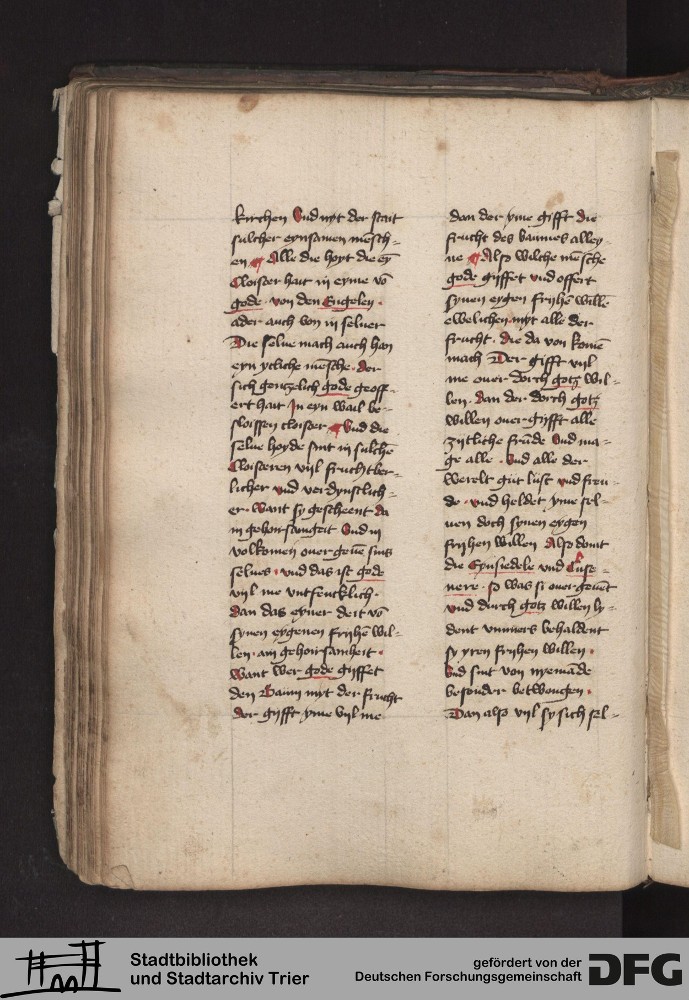 kirchen Vnd myt der stait
sulcher eynsamen mēsch-
en Alle die hoyt die eȳ
Cloister hait in eyme vō
gode · von den Engelen ·
ader auch von in seluer
Die selue mach auch han
eyn ycliche mēsche · der
sich gentzelich gode geoff-
ert hait In eyn wail be-
sloissen cloister · Vnd die
selue hoyde sint in sulchē
Cloisteren vijl fruchtber-
licher vnd verdynstlich-
er · Want sy gescheent da
in gehoirsamgeit Vnd in
volkomen ouer geuē sins
selues · vnd das ist gode
vijl me vntfencklich ·
dan das eyner deit vō
synen eygenen frijhē wil-
len · ain gehoirsamheit ·
Want wer gode gijffet
den Baum myt der frucht
der gijfft yme vijl me
dan der yme gifft die
frucht des baumes alley-
ne Also wilche mēsche
gode gijffet vnd offert
synen eygen frijhē willē
ewelichen myt alle der
frucht · die da von komē
mach Der gifft vijl
me ouer dorch gotz wil-
len · dan der dorch gotz
willen ouer gijfft alle
zijtliche frūde Vnd ma-
ge alle · Vnd alle der
werelt gut lust vnd freu-
de · vnd heldet yme sel-
uen doch synen eygen
frijhen willen Also doint
die Eynsiedele vnd Cluse-
nere · so was si ouer geuēt
vnd durch gotz willen ly-
dent vmmers behaldent
sy yren frijhen willen ·
Vnd sint von nyemāde
besonder betwongen ·
Dan also vijl sy sich sel-
Stadtbibliothek
und Stadtarchiv Trier
gefördert von der
Deutschen Forschungsgemeinschaft
DFG